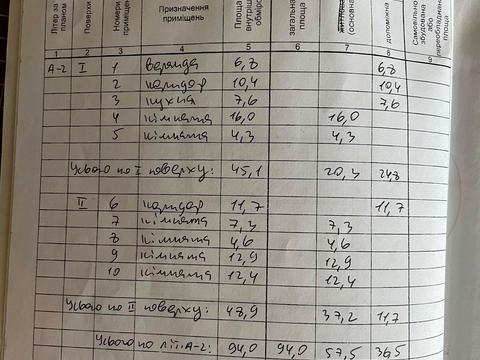 Літер за планом | Поверхи | Номери приміщень | Призначення приміщень | Площа внутріш обміро | загальна площа | житлова (основна | допоміжна | Самовільно збудована або переобладнана площа
1 2 3 4 5 6 7 8 9
А-2 I 1 веранда 6,8 6,8
2 коридор 10,4 10,4
3 кухня 7,6 7,6
4 кімната 16,0 16,0
5 кімната 4,3 4,3
Усього по I поверху: 45,1 20,3 24,8
II 6 коридор 11,7 11,7
7 кімната 7,3 7,3
8 кімната 4,6 4,6
9 кімната 12,9 12,9
10 кімната 12,4 12,4
Усього по II поверху: 48,9 37,2 11,7
Усього по літ. А-2: 94,0 94,0 57,5 36,5